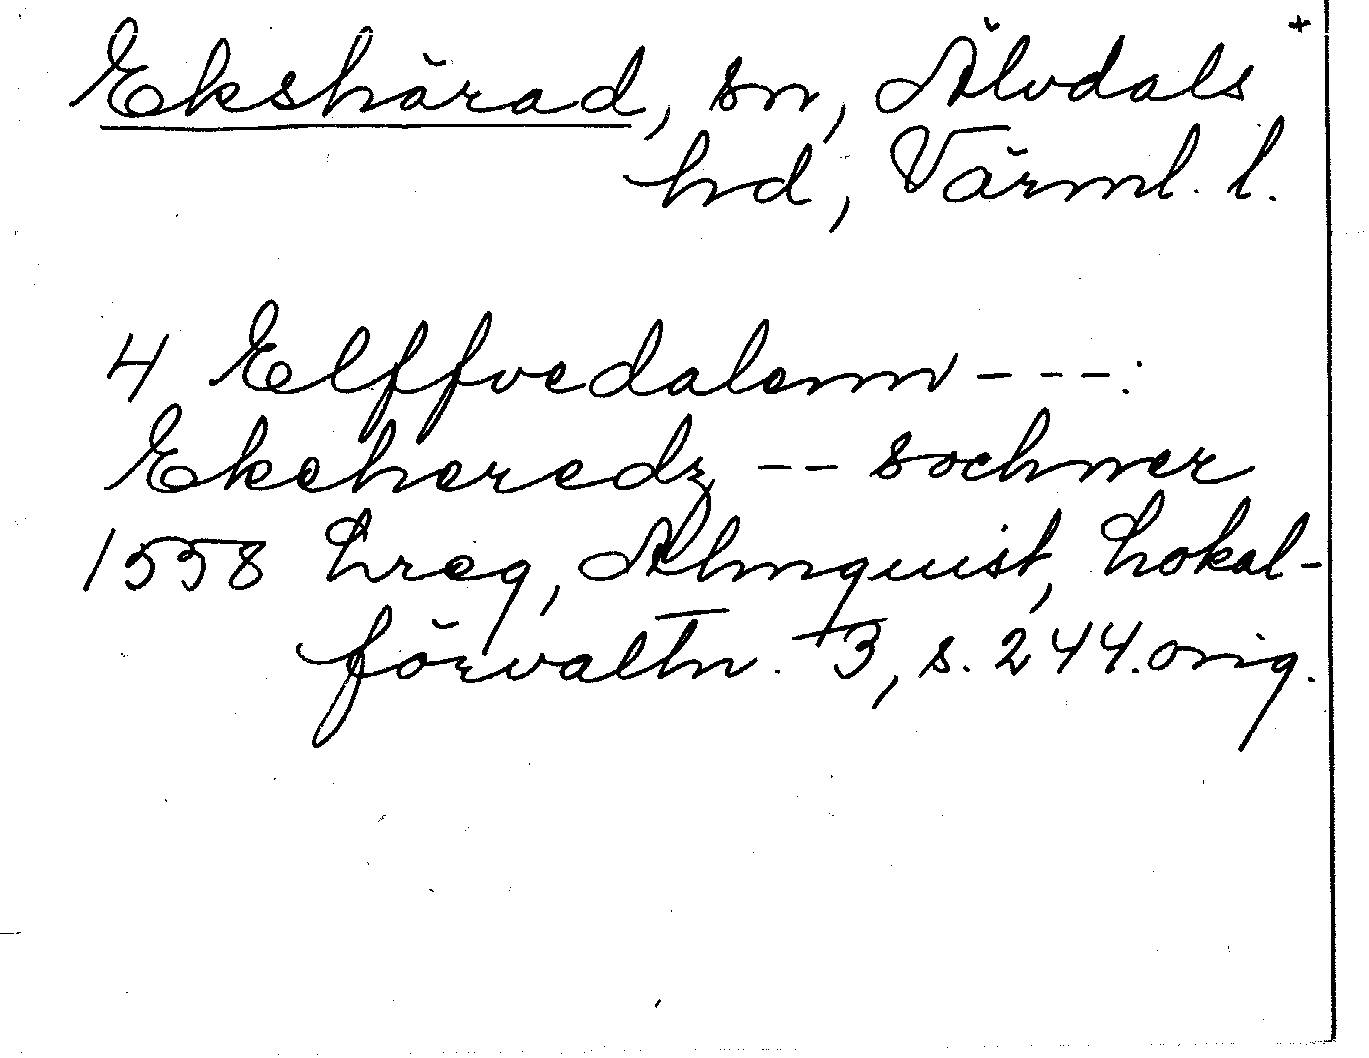 Ekshärad, sn, Älvdals +
hd, Värml. l.
4 Elffvedalenn ---:
Ekeheredz -- sochner
1558 Lreg, Almquist, Lokal-
förvaltn. 3, s. 244. orig.